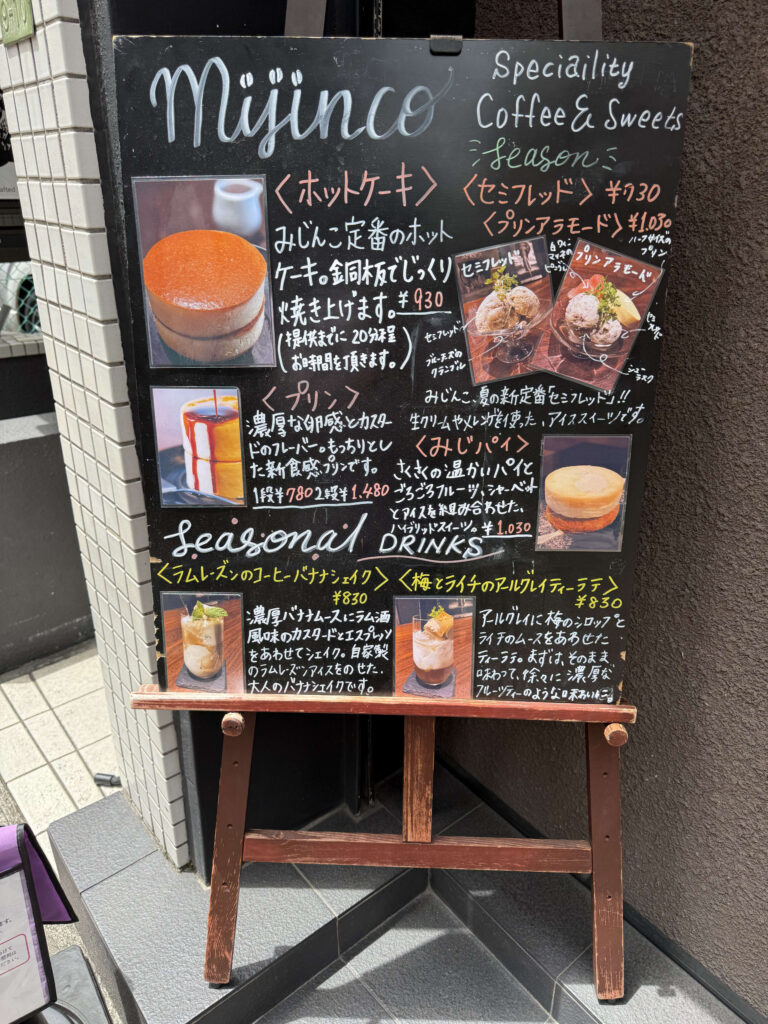 Mijinco
Speciality
Coffee & Sweets
Season
〈ホットケーキ〉
みじんこ定番のホット
ケーキ。銅板でじっくり
焼き上げます。¥930
(提供までに20分程
お時間を頂きます。)
〈セミフレッド〉 ¥730
〈プリンアラモード〉¥1.030
ハーフサイズの
プリン
セミフレッド
プリンアラモード
セミフレッド
クランブル
シュー
ラスク
みじんこ、夏の新定番「セミフレッド」!!
生クリームやメレンゲを使った、アイススイーツです。
〈プリン〉
濃厚な卵感とカスター
ドのフレーバー。もっちりとし
た新食感プリンです。
1段¥780 2段¥1.480
〈みじパイ〉
さくさくの温かいパイと
ごろごろフルーツ、シャーベット
とアイスを組み合わせた、
ハイブリッドスイーツ。¥1.030
Seasonal DRINKS
〈ラムレーズンのコーヒーバナナシェイク〉
¥830
濃厚バナナムースにラム酒
風味のカスタードとエスプレッソ
をあわせてシェイク。自家製
のラムレーズンアイスをのせた、
大人のバナナシェイクです。
〈梅とライチのアールグレイティーラテ〉
¥830
アールグレイに梅のシロップと
ライチのムースをあわせた
ティーラテ。まずは、そのまま
味わって、徐々に濃厚な
フルーツティーのような味わいに